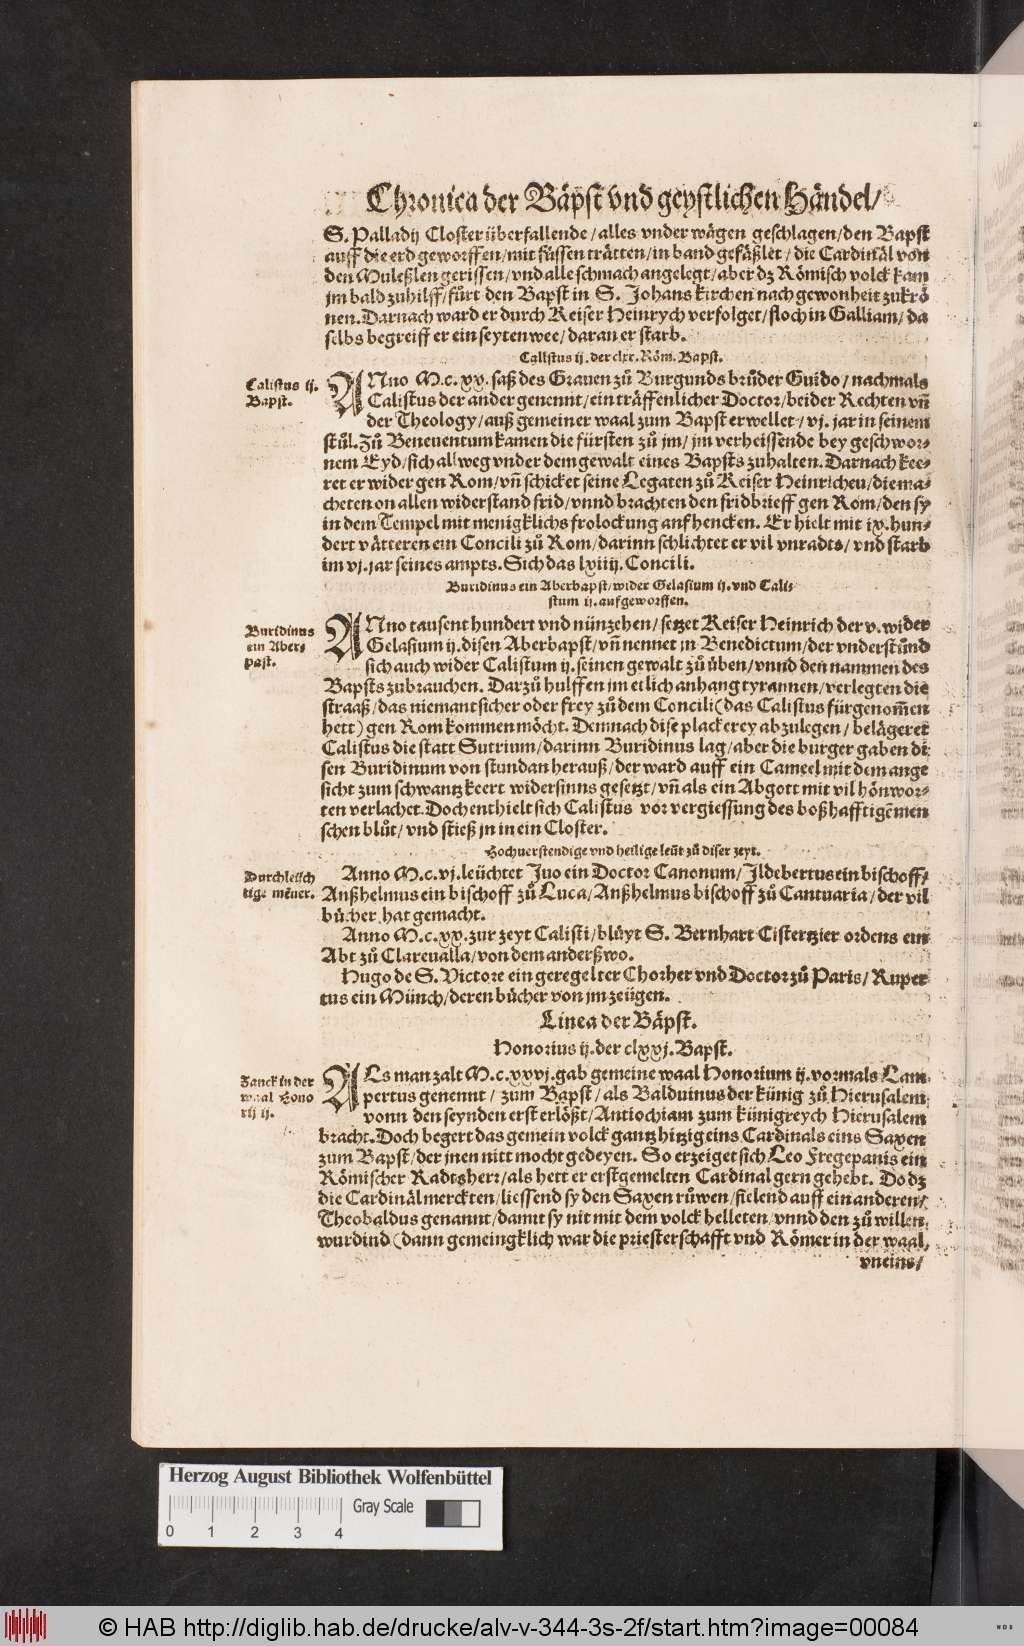 Chronica der Bäpst vnd geystlichen Händel/
S. Palladij Closter überfallende/alles vnder wägen geschlagen/den Bapst
auff die erd geworffen/mit füssen trätten/in band gefäßlet/die Cardinäl von
den Muleßlen gerissen/vnd alle schmach angelegt/aber dz Römisch volck kam
jm bald zuhilff/fůrt den Bapst in S. Johans kirchen nach gewonheit zukrö
nen. Darnach ward er durch Keiser Heinrych verfolget/floch in Galliam/da
selbs begreiff er ein seyten wee/daran er starb.
Calistus ij. der clxx. Röm. Bapst.
Calistus ij.
Bapst.
ANno M.c.xx. saß des Grauen zů Burgunds brůder Guido/nachmals
Calistus der ander genennt/ein träffenlicher Doctor/beider Rechten vñ
der Theology/auß gemeiner waal zum Bapst erwellet/vj. jar in seinem
stůl. Zů Beneuentum kamen die fürsten zů jm/jm verheissende bey geschwor-
nem Eyd/sich allweg vnder dem gewalt eines Bapsts zuhalten. Darnach kee-
ret er wider gen Rom/vñ schicket seine Legaten zů Keiser Heinrichen/die ma-
cheten on allen widerstand frid/vnnd brachten den fridbrieff gen Rom/den sy
in dem Tempel mit menigklichs frolockung auf hencken. Er hielt mit ix. hun-
dert vätteren ein Concili zů Rom/darinn schlichtet er vil vnradts/vnd starb
im vj. jar seines ampts. Sich das lxiiij. Concili.
Buridinus ein Aberbapst/wider Gelasium ij. vnd Cali-
stum ij. aufgeworffen.
Buridinus
ein Aber-
past.
ANno tausent hundert vnd nünzehen/setzet Keiser Heinrich der v. wider
Gelasium ij. disen Aberbapst/vñ nennet jn Benedictum/der vnderstůnd
sich auch wider Calistum ij. seinen gewalt zů üben/vnnd den nammen des
Bapsts zubrauchen. Darzů hulffen jm etlich anhang tyrannen/verlegten die
straaß/das niemant sicher oder frey zů dem Concili (das Calistus fürgenom̃en
hett) gen Rom kommen möcht. Demnach dise plackerey abzulegen/belägeret
Calistus die statt Sutrium/darinn Buridinus lag/aber die burger gaben di
sen Buridinum von stundan herauß/der ward auff ein Cameel mit dem ange
sicht zum schwantz keert widersinns gesetzt/vñ als ein Abgott mit vil hönwor-
ten verlachet. Doch enthielt sich Calistus vor vergiessung des boßhafftigē men
schen blůt/vnd stieß jn in ein Closter.
Hochuerstendige vnd heilige leüt zů diser zeyt.
Durchleüch
tige mēner.
Anno M.c.vj. leüchtet Juo ein Doctor Canonum/Jldebertus ein bischoff/
Anßhelmus ein bischoff zů Luca/Anßhelmus bischoff zů Cantuaria/der vil
bücher hat gemacht.
Anno M.c.xx. zur zeyt Calisti/blůyt S. Bernhart Cistertzier ordens ein
Abt zů Clareualla/von dem anderßwo.
Hugo de S. Victore ein geregelter Chorher vnd Doctor zů Paris/Ruper
tus ein Münch/deren bücher von jm zeügen.
Linea der Bäpst.
Honorius ij. der clxxj. Bapst.
Zanck in der
waal Hono
rij ij.
ALs man zalt M.c.xxvj. gab gemeine waal Honorium ij. vormals Lam-
pertus genennt/zum Bapst/als Balduinus der künig zů Hierusalem
vonn den feynden erst erlößt/Antiochiam zum künigreych Hierusalem
bracht. Doch begert das gemein volck gantz hitzig eins Cardinals eins Saxen
zum Bapst/der jnen nitt mocht gedeyen. So erzeiget sich Leo Fregepanis ein
Römischer Radtsherr/als hett er erstgemelten Cardinal gern gehebt. Do dz
die Cardinäl merckten/liessend sy den Saxen růwen/fielend auff ein anderen/
Theobaldus genannt/damit sy nit mit dem volck helleten/vnnd den zů willen
wurdind (dann gemeingklich war die priesterschafft vnd Römer in der waal
vneins/
Herzog August Bibliothek Wolfenbüttel
Gray Scale
0 1 2 3 4
© HAB http://diglib.hab.de/drucke/alv-v-344-3s-2f/start.htm?image=00084